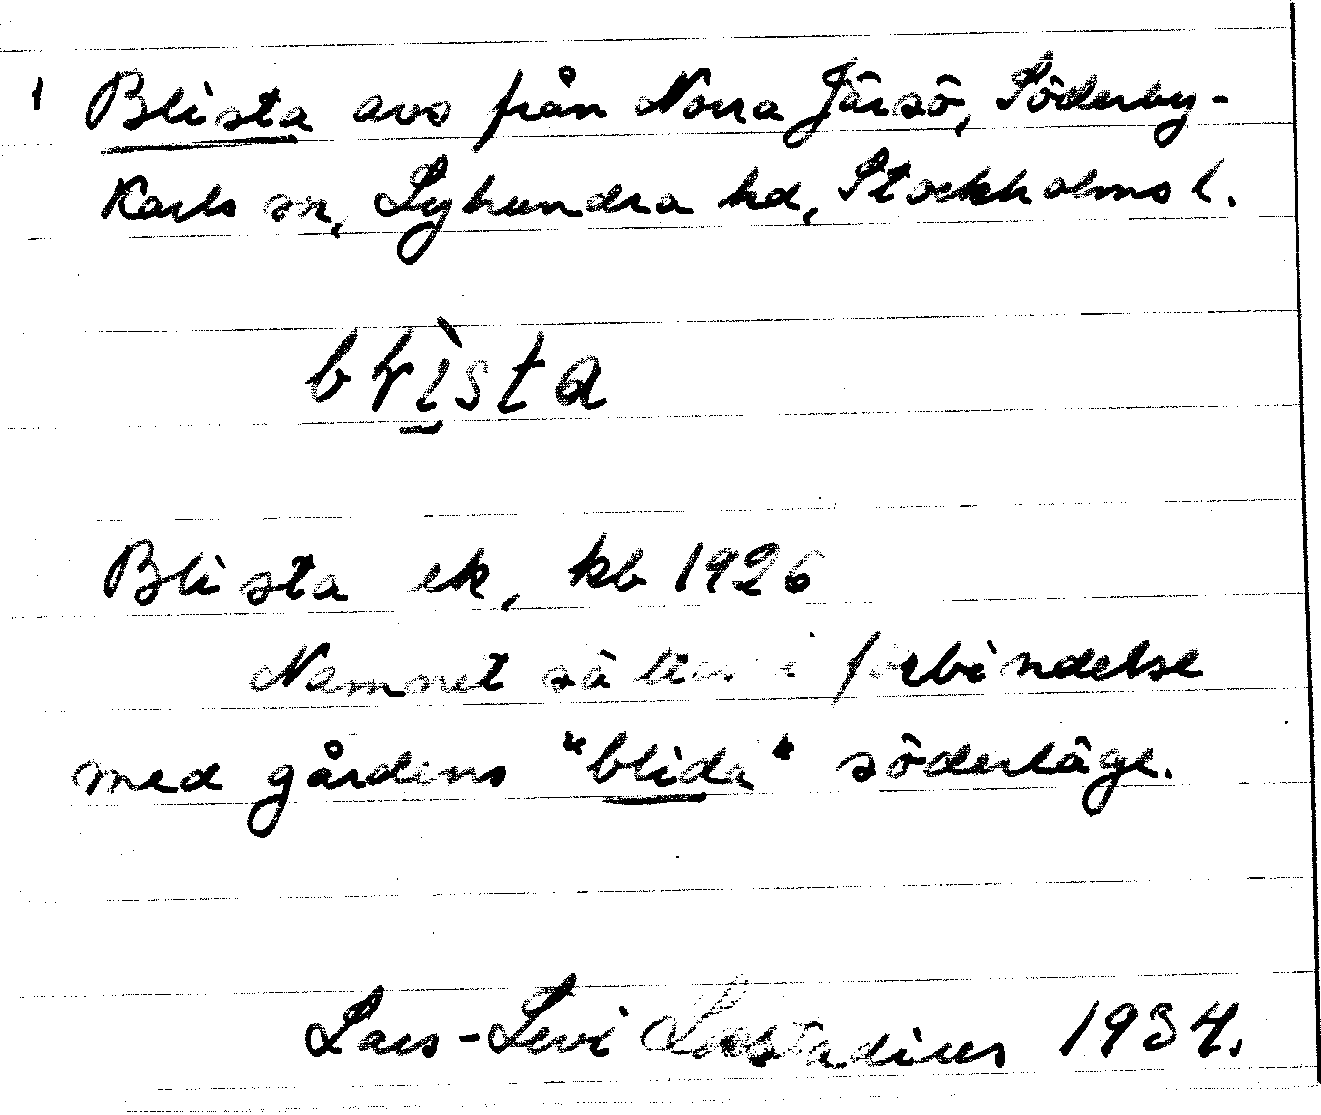 1 Blista avs från Norra Järsö, Söderby-
Karls sn, Lyhundra hd, Stockholms l.
blìsta
Blista ek, kb 1926
Namnet sättes i förbindelse
med gårdens "blida" söderläge.
Lars-Levi Læstadius 1934.